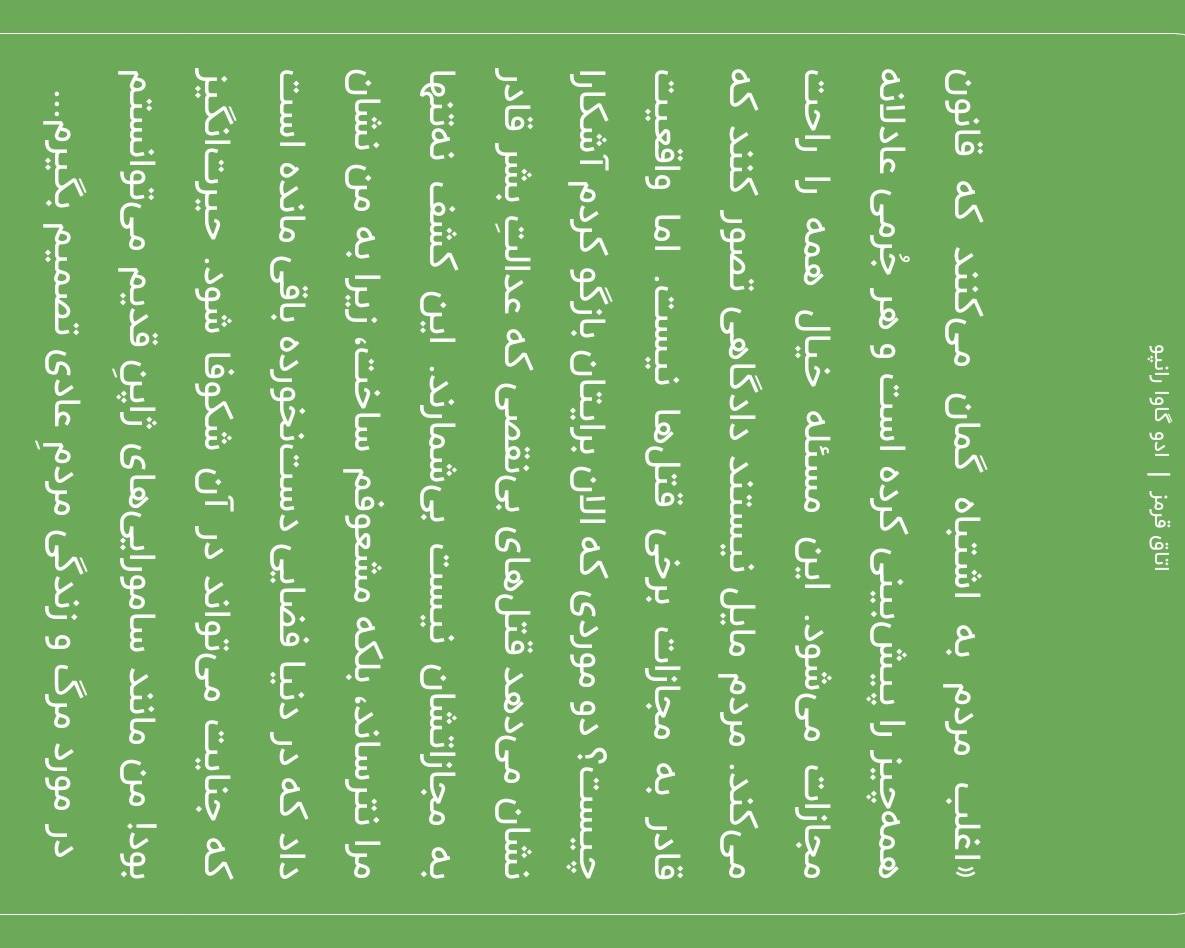 اتاق قرمز | ادو گاوا رانپو
«اغلب مردم به اشتباه گمان می‌کنند که قانون
همه‌چیز را پیش‌بینی کرده است و هر جُرمی عادلانه
مجازات می‌شود. این مسئله خیال همه را راحت
می‌کند. مردم مایل نیستند دادگاهی تصور کنند که
قادر به مجازات برخی قتل‌ها نیست. اما واقعیت
چیست؟ دو موردی که الان برایتان بازگو کردم آشکارا
نشان می‌دهد قتل‌های بی‌نقصی که عدالتِ بشر قادر
به مجازاتشان نیست بی‌شمارند. این کشف نه‌تنها
مرا نترساند، بلکه مشعوفم ساخت، زیرا به من نشان
داد که در دنیا فضایی دست‌نخورده باقی مانده است
که جنایت می‌تواند در آن شکوفا شود. حیرت‌انگیز
بود! من مانند سامورایی‌های ژاپنِ قدیم می‌توانستم
در مورد مرگ و زندگی مردمِ عادی تصمیم بگیرم...